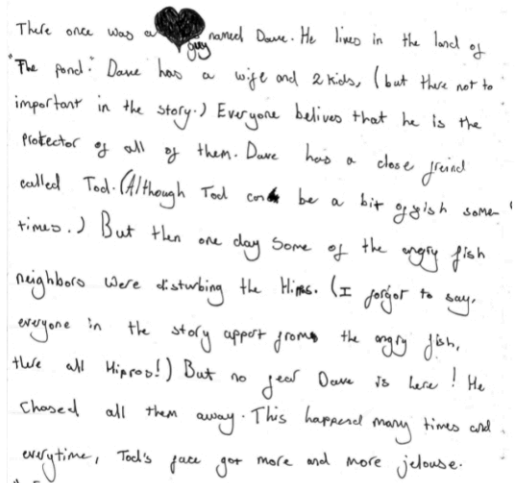 There once was a guy named Dave. He lives in the land of
"The pond." Dave has a wife and 2 kids, (but there not to
important in the story.) Everyone belives that he is the
Protector of all of them. Dave has a close freind
called Tod. (Although Tod can be a bit offish some
times.) But then one day some of the angry fish
neighbors were disturbing the Hippos. (I forgot to say,
everyone in the story appart from the angry fish,
there all Hippos!) But no fear Dave is here! He
Chased all them away. This happend many times and
everytime, Tod's face got more and more jelouse.